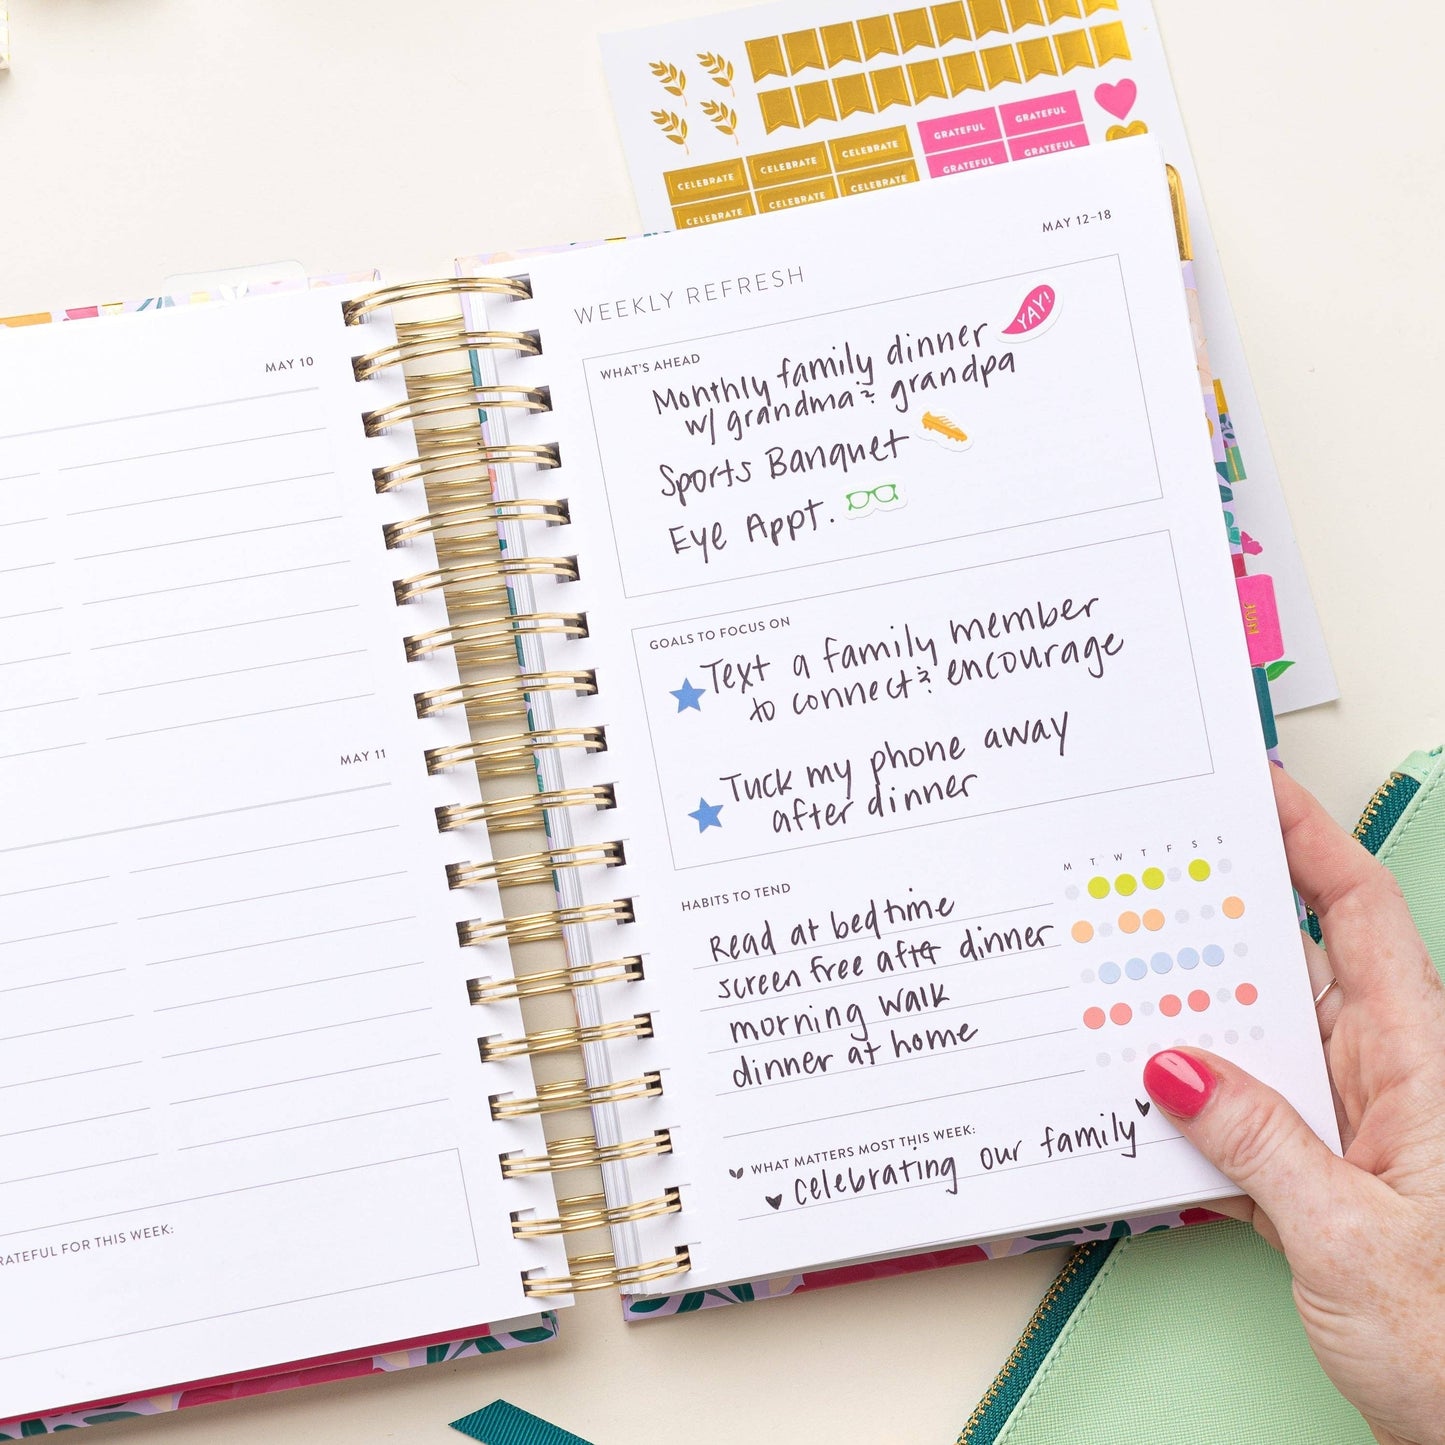 CELEBRATE CELEBRATE CELEBRATE GRATEFUL GRATEFUL
CELEBRATE CELEBRATE CELEBRATE GRATEFUL GRATEFUL
MAY 10
MAY 11
RATEFUL FOR THIS WEEK:
MAY 12-18
WEEKLY REFRESH
WHAT'S AHEAD
Monthly family dinner YAY!
w/ grandma & grandpa
Sports Banquet
Eye Appt.
GOALS TO FOCUS ON
Text a family member
to connect & encourage
Tuck my phone away
after dinner
HABITS TO TEND
M T W T F S S
Read at bedtime
screen free after dinner
morning walk
dinner at home
WHAT MATTERS MOST THIS WEEK:
celebrating our family
JUN